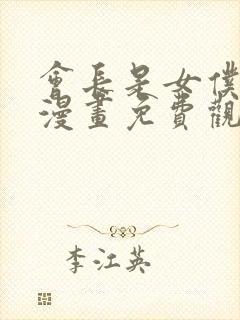 會長是女僕
漫畫免費觀
李江英